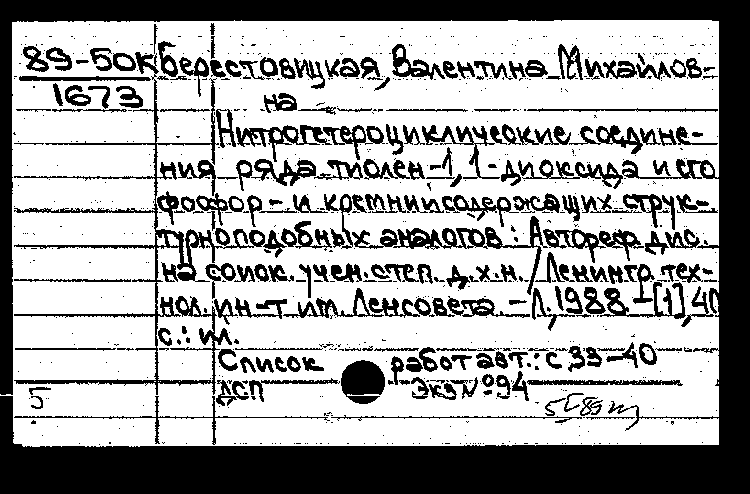 89-50к Берестовицкая, Валентина Михайлов-
1673 на
Нитрогетероциклические соедине-
ния ряда тиолен-1,1-диоксида и его
фосфор- и кремнийсодержащих струк-
турноподобных аналогов : Автореф. дис.
на соиск. учен. степ. д.х.н. / Ленингр. тех-
нол. ин-т им. Ленсовета. - Л., 1988. - [1], 40
с.: ил.
Список работ авт.: с. 33-40
5 ДСП Экз № 94